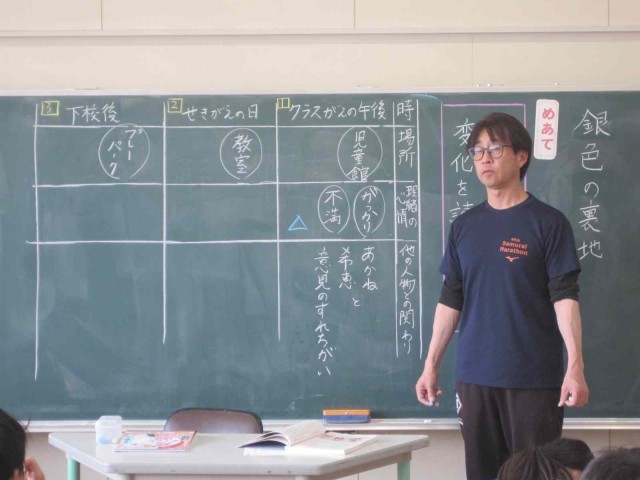 銀色の裏地
めあて
変化を
時
場所
理緒の
心情
他の人物との関わり
1 クラスがえの午後
児童館
がっかり
不満
△
あかね
希恵 と
意見のすれちがい
2 せきがえの日
教室
3 下校後
プレー
パーク
Samurai
Marathon